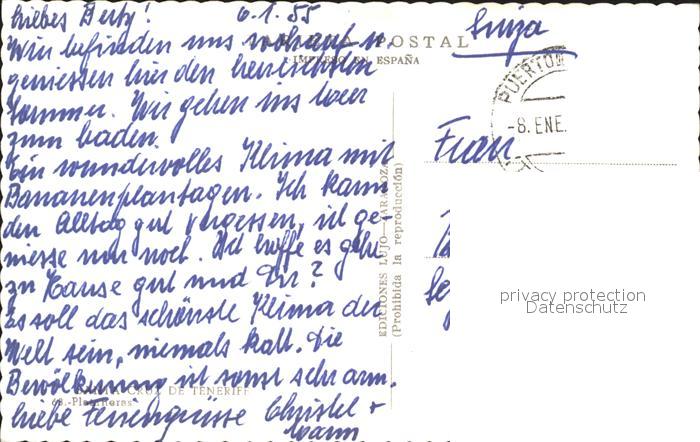 Liebes Berty! 6.1.55
Wir befinden uns wohlauf u.
geniessen hier den herrlichsten
Sommer. Wir gehen ins Meer
zum baden.
Ein wundervolles Klima mit
Bananenplantagen. Ich kann
den Alltag gut vergessen, ich ge-
niesse nur noch. Ich hoffe es gehe
zu Hause gut und Dir?
Es soll das schönste Klima der
Welt sein, niemals kalt. Die
Bevölkerung ist sonst sehr arm.
Liebe Feriengrüsse Christel +
TARJETA POSTAL
IMPRESO EN ESPAÑA
SANTA CRUZ DE TENERIFE
EDICIONES LUJO—ZARAGOZA
(Prohibida la reproducción)
Suiza
PUERTO
-8. ENE.
Frau
privacy protection
Datenschutz